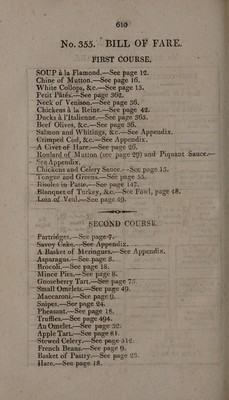 610
No. 355. BILL OF FARE.
FIRST COURSE.
SOUP à la Flamond.—See page 12.
Chine of Mutton.—See page 16.
White Collops, &c.—See page 15.
Petit Pâtés.—See page 362.
Neck of Venison.—See page 36.
Chickens à la Reine.—See page 42.
Ducks à l'Italienne.—See page 365.
Beef Olives, &c.—See page 36.
Salmon and Whitings, &c.—See Appendix.
Crimped Cod, &c.—See Appendix.
A Civet of Hare.—See page 26.
Roulard of Mutton (see page 29) and Piquant Sauce.—
See Appendix.
Chickens and Celery Sauce.—See page 15.
Tongue and Greens.—See page 55.
Risoles in Paste.—See page 147.
Blanquet of Turkey, &c.—See Fowl, page 48.
Loin of Veal.—See page 49.
SECOND COURSE.
Partridges.—See page 7.
Savoy Cake.—See Appendix.
A Basket of Meringues.—See Appendix.
Asparagus.—See page 8.
Brocoli.—See page 18.
Mince Pies.—See page 8.
Gooseberry Tart.—See page 75.
Small Omelets.—See page 49.
Maccaroni.—See page 9.
Snipes.—See page 24.
Pheasant.—See page 18.
Truffles.—See page 494.
An Omelet.—See page 32.
Apple Tart.—See page 81.
Stewed Celery.—See page 512.
French Beans.—See page 9.
Basket of Pastry.—See page 23.
Hare.—See page 18.